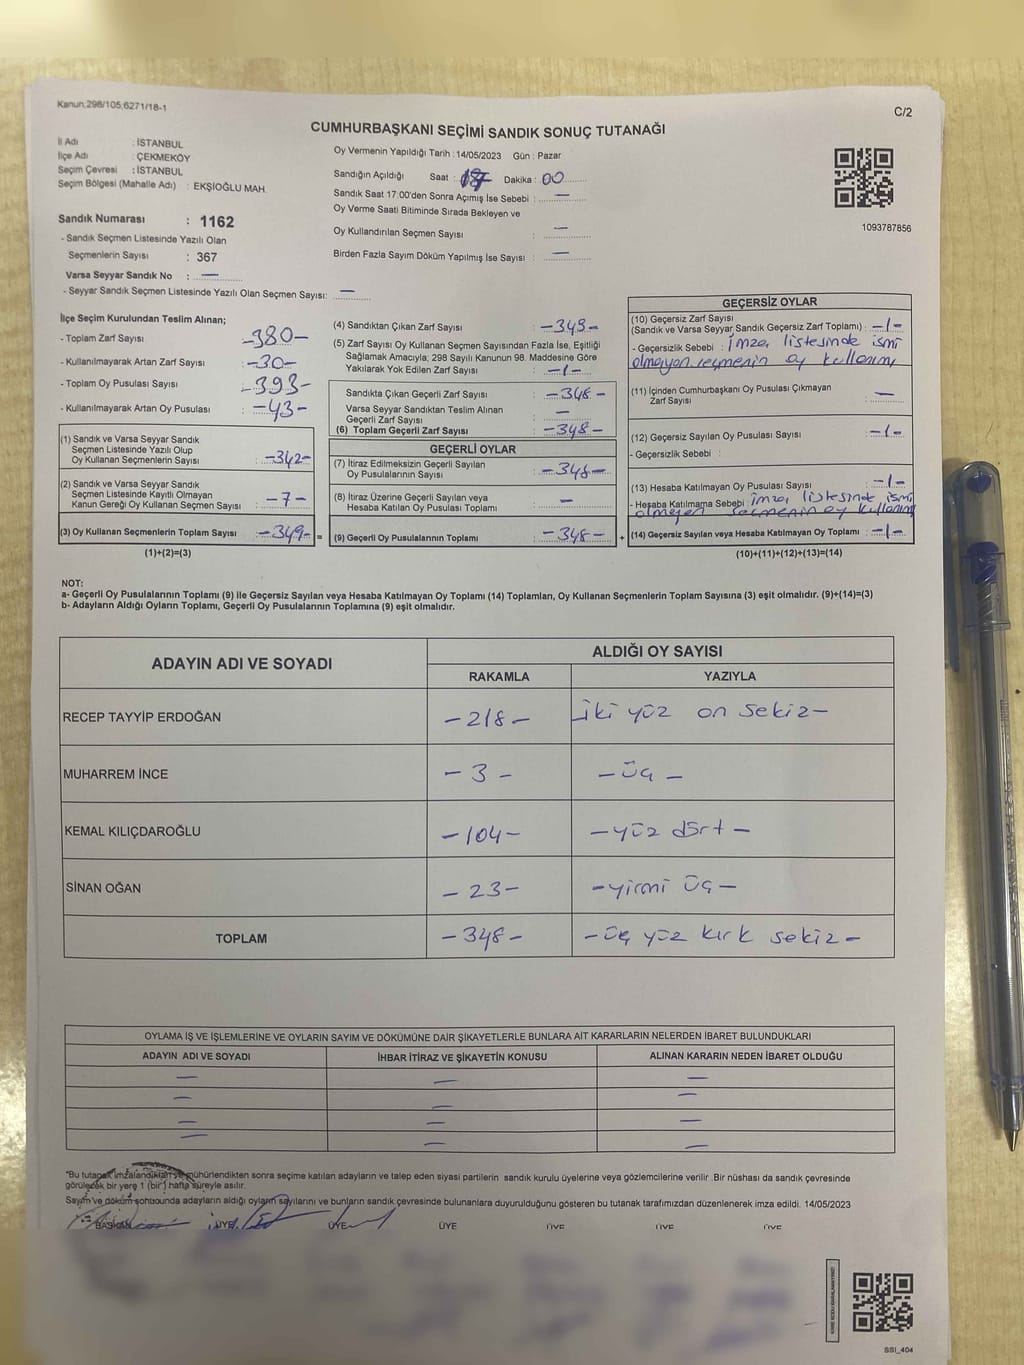 Kanun;298/105;6271/18-1
C/2
CUMHURBAŞKANI SEÇİMİ SANDIK SONUÇ TUTANAĞI
İl Adı : İSTANBUL
İlçe Adı : ÇEKMEKÖY
Seçim Çevresi : İSTANBUL
Seçim Bölgesi (Mahalle Adı) : EKŞİOĞLU MAH.
Sandık Numarası : 1162
- Sandık Seçmen Listesinde Yazılı Olan
Seçmenlerin Sayısı : 367
Varsa Seyyar Sandık No : —
- Seyyar Sandık Seçmen Listesinde Yazılı Olan Seçmen Sayısı: —
Oy Vermenin Yapıldığı Tarih : 14/05/2023 Gün : Pazar
Sandığın Açıldığı Saat : 17 Dakika : 00
Sandık Saat 17:00'den Sonra Açımış İse Sebebi : —
Oy Verme Saati Bitiminde Sırada Bekleyen ve
Oy Kullandırılan Seçmen Sayısı : —
Birden Fazla Sayım Döküm Yapılmış İse Sayısı : —
1093787856
İlçe Seçim Kurulundan Teslim Alınan;
- Toplam Zarf Sayısı : -380-
- Kullanılmayarak Artan Zarf Sayısı : -30-
- Toplam Oy Pusulası Sayısı : -393-
- Kullanılmayarak Artan Oy Pusulası : -43-
(1) Sandık ve Varsa Seyyar Sandık
Seçmen Listesinde Yazılı Olup
Oy Kullanan Seçmenlerin Sayısı : -342-
(2) Sandık ve Varsa Seyyar Sandık
Seçmen Listesinde Kayıtlı Olmayan
Kanun Gereği Oy Kullanan Seçmen Sayısı : -7-
(3) Oy Kullanan Seçmenlerin Toplam Sayısı : -349- =
(1)+(2)=(3)
(4) Sandıktan Çıkan Zarf Sayısı : -349-
(5) Zarf Sayısı Oy Kullanan Seçmen Sayısından Fazla İse, Eşitliği
Sağlamak Amacıyla; 298 Sayılı Kanunun 98. Maddesine Göre
Yakılarak Yok Edilen Zarf Sayısı : -1-
Sandıkta Çıkan Geçerli Zarf Sayısı : -348-
Varsa Seyyar Sandıktan Teslim Alınan
Geçerli Zarf Sayısı : —
(6) Toplam Geçerli Zarf Sayısı : -348-
GEÇERLİ OYLAR
(7) İtiraz Edilmeksizin Geçerli Sayılan
Oy Pusulalarının Sayısı : -348-
(8) İtiraz Üzerine Geçerli Sayılan veya
Hesaba Katılan Oy Pusulası Toplamı : —
(9) Geçerli Oy Pusulalarının Toplamı : -348- +
GEÇERSİZ OYLAR
(10) Geçersiz Zarf Sayısı
(Sandık ve Varsa Seyyar Sandık Geçersiz Zarf Toplamı) : -1-
- Geçersizlik Sebebi : İmza listesinde ismi
olmayan seçmenin oy kullanımı
(11) İçinden Cumhurbaşkanı Oy Pusulası Çıkmayan
Zarf Sayısı : —
(12) Geçersiz Sayılan Oy Pusulası Sayısı : -1-
- Geçersizlik Sebebi :
(13) Hesaba Katılmayan Oy Pusulası Sayısı : -1-
- Hesaba Katılmama Sebebi : İmza listesinde ismi
olmayan seçmenin oy kullanımı
(14) Geçersiz Sayılan veya Hesaba Katılmayan Oy Toplamı : -1-
(10)+(11)+(12)+(13)=(14)
NOT:
a- Geçerli Oy Pusulalarının Toplamı (9) ile Geçersiz Sayılan veya Hesaba Katılmayan Oy Toplamı (14) Toplamları, Oy Kullanan Seçmenlerin Toplam Sayısına (3) eşit olmalıdır. (9)+(14)=(3)
b- Adayların Aldığı Oyların Toplamı, Geçerli Oy Pusulalarının Toplamına (9) eşit olmalıdır.
ADAYIN ADI VE SOYADI
ALDIĞI OY SAYISI
RAKAMLA YAZIYLA
RECEP TAYYİP ERDOĞAN -218- iki yüz on sekiz-
MUHARREM İNCE -3- -üç-
KEMAL KILIÇDAROĞLU -104- -yüz dört-
SİNAN OĞAN -23- -yirmi üç-
TOPLAM -348- -üç yüz kırk sekiz-
OYLAMA İŞ VE İŞLEMLERİNE VE OYLARIN SAYIM VE DÖKÜMÜNE DAİR ŞİKAYETLERLE BUNLARA AİT KARARLARIN NELERDEN İBARET BULUNDUKLARI
ADAYIN ADI VE SOYADI İHBAR İTİRAZ VE ŞİKAYETİN KONUSU ALINAN KARARIN NEDEN İBARET OLDUĞU
— — —
— — —
— — —
— — —
"Bu tutanak imzalandıktan ve mühürlendikten sonra seçime katılan adayların ve talep eden siyasi partilerin sandık kurulu üyelerine veya gözlemcilerine verilir. Bir nüshası da sandık çevresinde
görülecek bir yere 1 (bir) hafta süreyle asılır.
Sayım ve döküm sonucunda adayların aldığı oyların sayılarını ve bunların sandık çevresinde bulunanlara duyurulduğunu gösteren bu tutanak tarafımızdan düzenlenerek imza edildi. 14/05/2023
BAŞKAN ÜYE ÜYE ÜYE ÜYE ÜYE ÜYE
SSI_404